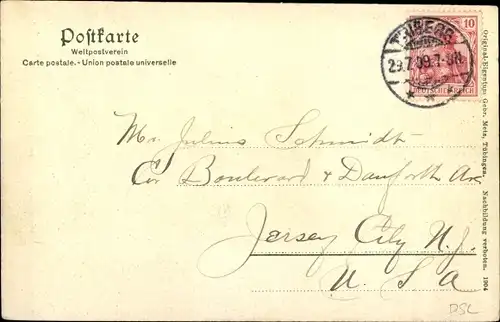 Postkarte
Weltpostverein
Carte postale. - Union postale universelle
10
DEUTSCHES REICH
TRIBERG
29.7.09.7-8N.
Mr Julius Schmidt
Cor Boulevard & Danforth Av
Jersey City N.J.
U. S A
Original-Eigentum Gebr. Metz, Tübingen. Nachbildung verboten. 1904
DSL